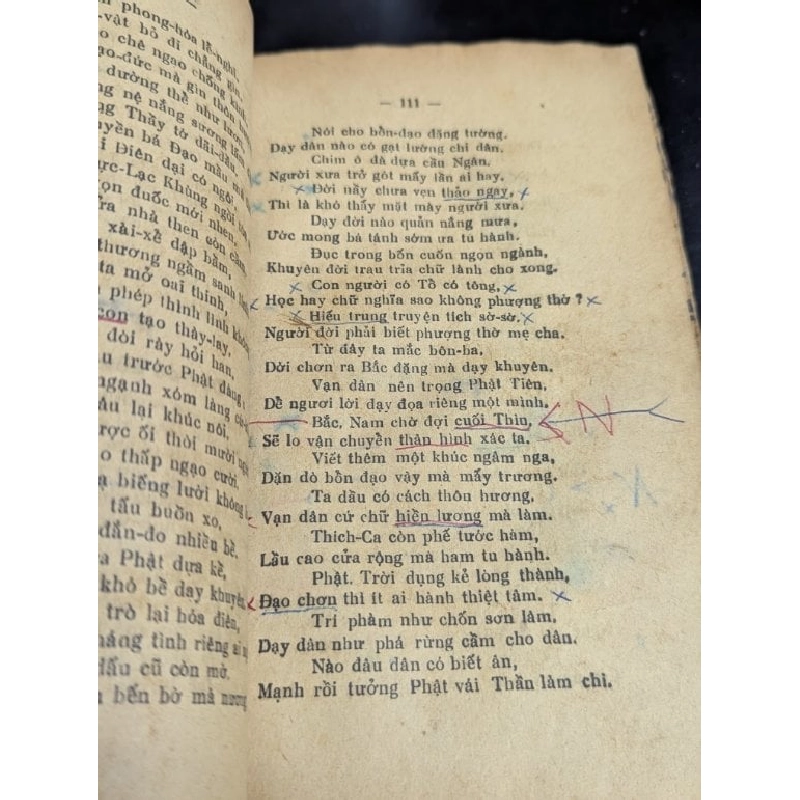 phong-hóa lễ-nghi.
vật bỏ đi chẳng gìn,
chê ngao chống kình
đạo-đức mà gìn thôn
dường thề như lươn.
nệ nắng sương lấm
Thầy tờ dãi-dầu.
bá Đạo mầu mà
Điên dại có ngôi.
Cực-Lạc Khùng ngồi
đuốc mới nhen.
nhà then còn cầm,
xài-xề dập bầm,
thương ngầm sanh
ta mở oai thinh,
phép thình lình
con tạo thày-lay.
đòi rày hỏi han.
trước Phật đàng
ngạnh xóm làng
lại khúc nôi,
ối thời mười
thấp ngạo cười.
biếng lười không
tấu buồn xo,
đắn-đo nhiều bề.
Phật dựa kề,
khó bề dạy khuyên
trò lại hỏa điên,
tình riêng ai
dấu cũ còn mờ.
bến bờ mà nương
— 111 —
Nói cho bồn-đạo đặng tường,
Dạy dân nào có gạt lường chi dân.
Chim ô đà dựa cầu Ngân,
Người xưa trở gót mấy lần ai hay.
Đời nầy chưa vẹn thảo ngay,
Thì là khó thấy mặt mày người xưa.
Dạy đời nào quản nắng mưa,
Ước mong bá tánh sớm ưa tu hành.
Đục trong bốn cuốn ngọn ngành,
Khuyên đời trau trỉa chữ lành cho xong.
Con người có Tổ có tông,
Học hay chữ nghĩa sao không phượng thờ ?
Hiếu trung truyện tích sờ-sờ.
Người đời phải biết phượng thờ mẹ cha.
Từ đây ta mắc bôn-ba.
Dời chơn ra Bắc đặng mà dạy khuyên.
Vạn dân nên trọng Phật Tiên,
Dể ngươi lời dạy đọa riêng một mình.
Bắc, Nam chờ đợi cuối Thìn,
Sẽ lo vận chuyển thân hình xác ta.
Viết thêm một khúc ngâm nga,
Dặn dò bồn đạo vậy mà mấy trương.
Ta dầu có cách thôn hương,
Vạn dân cứ chữ hiền lương mà làm.
Thích-Ca còn phế tước hàm,
Lầu cao cửa rộng mà ham tu hành.
Phật. Trời dụng kẻ lòng thành,
Đạo chơn thì ít ai hành thiệt tâm.
Tri phàm như chốn sơn lâm,
Dạy dân như phá rừng cầm cho dân.
Nào đâu dân có biết ân,
Mạnh rồi tưởng Phật vái Thần làm chi.